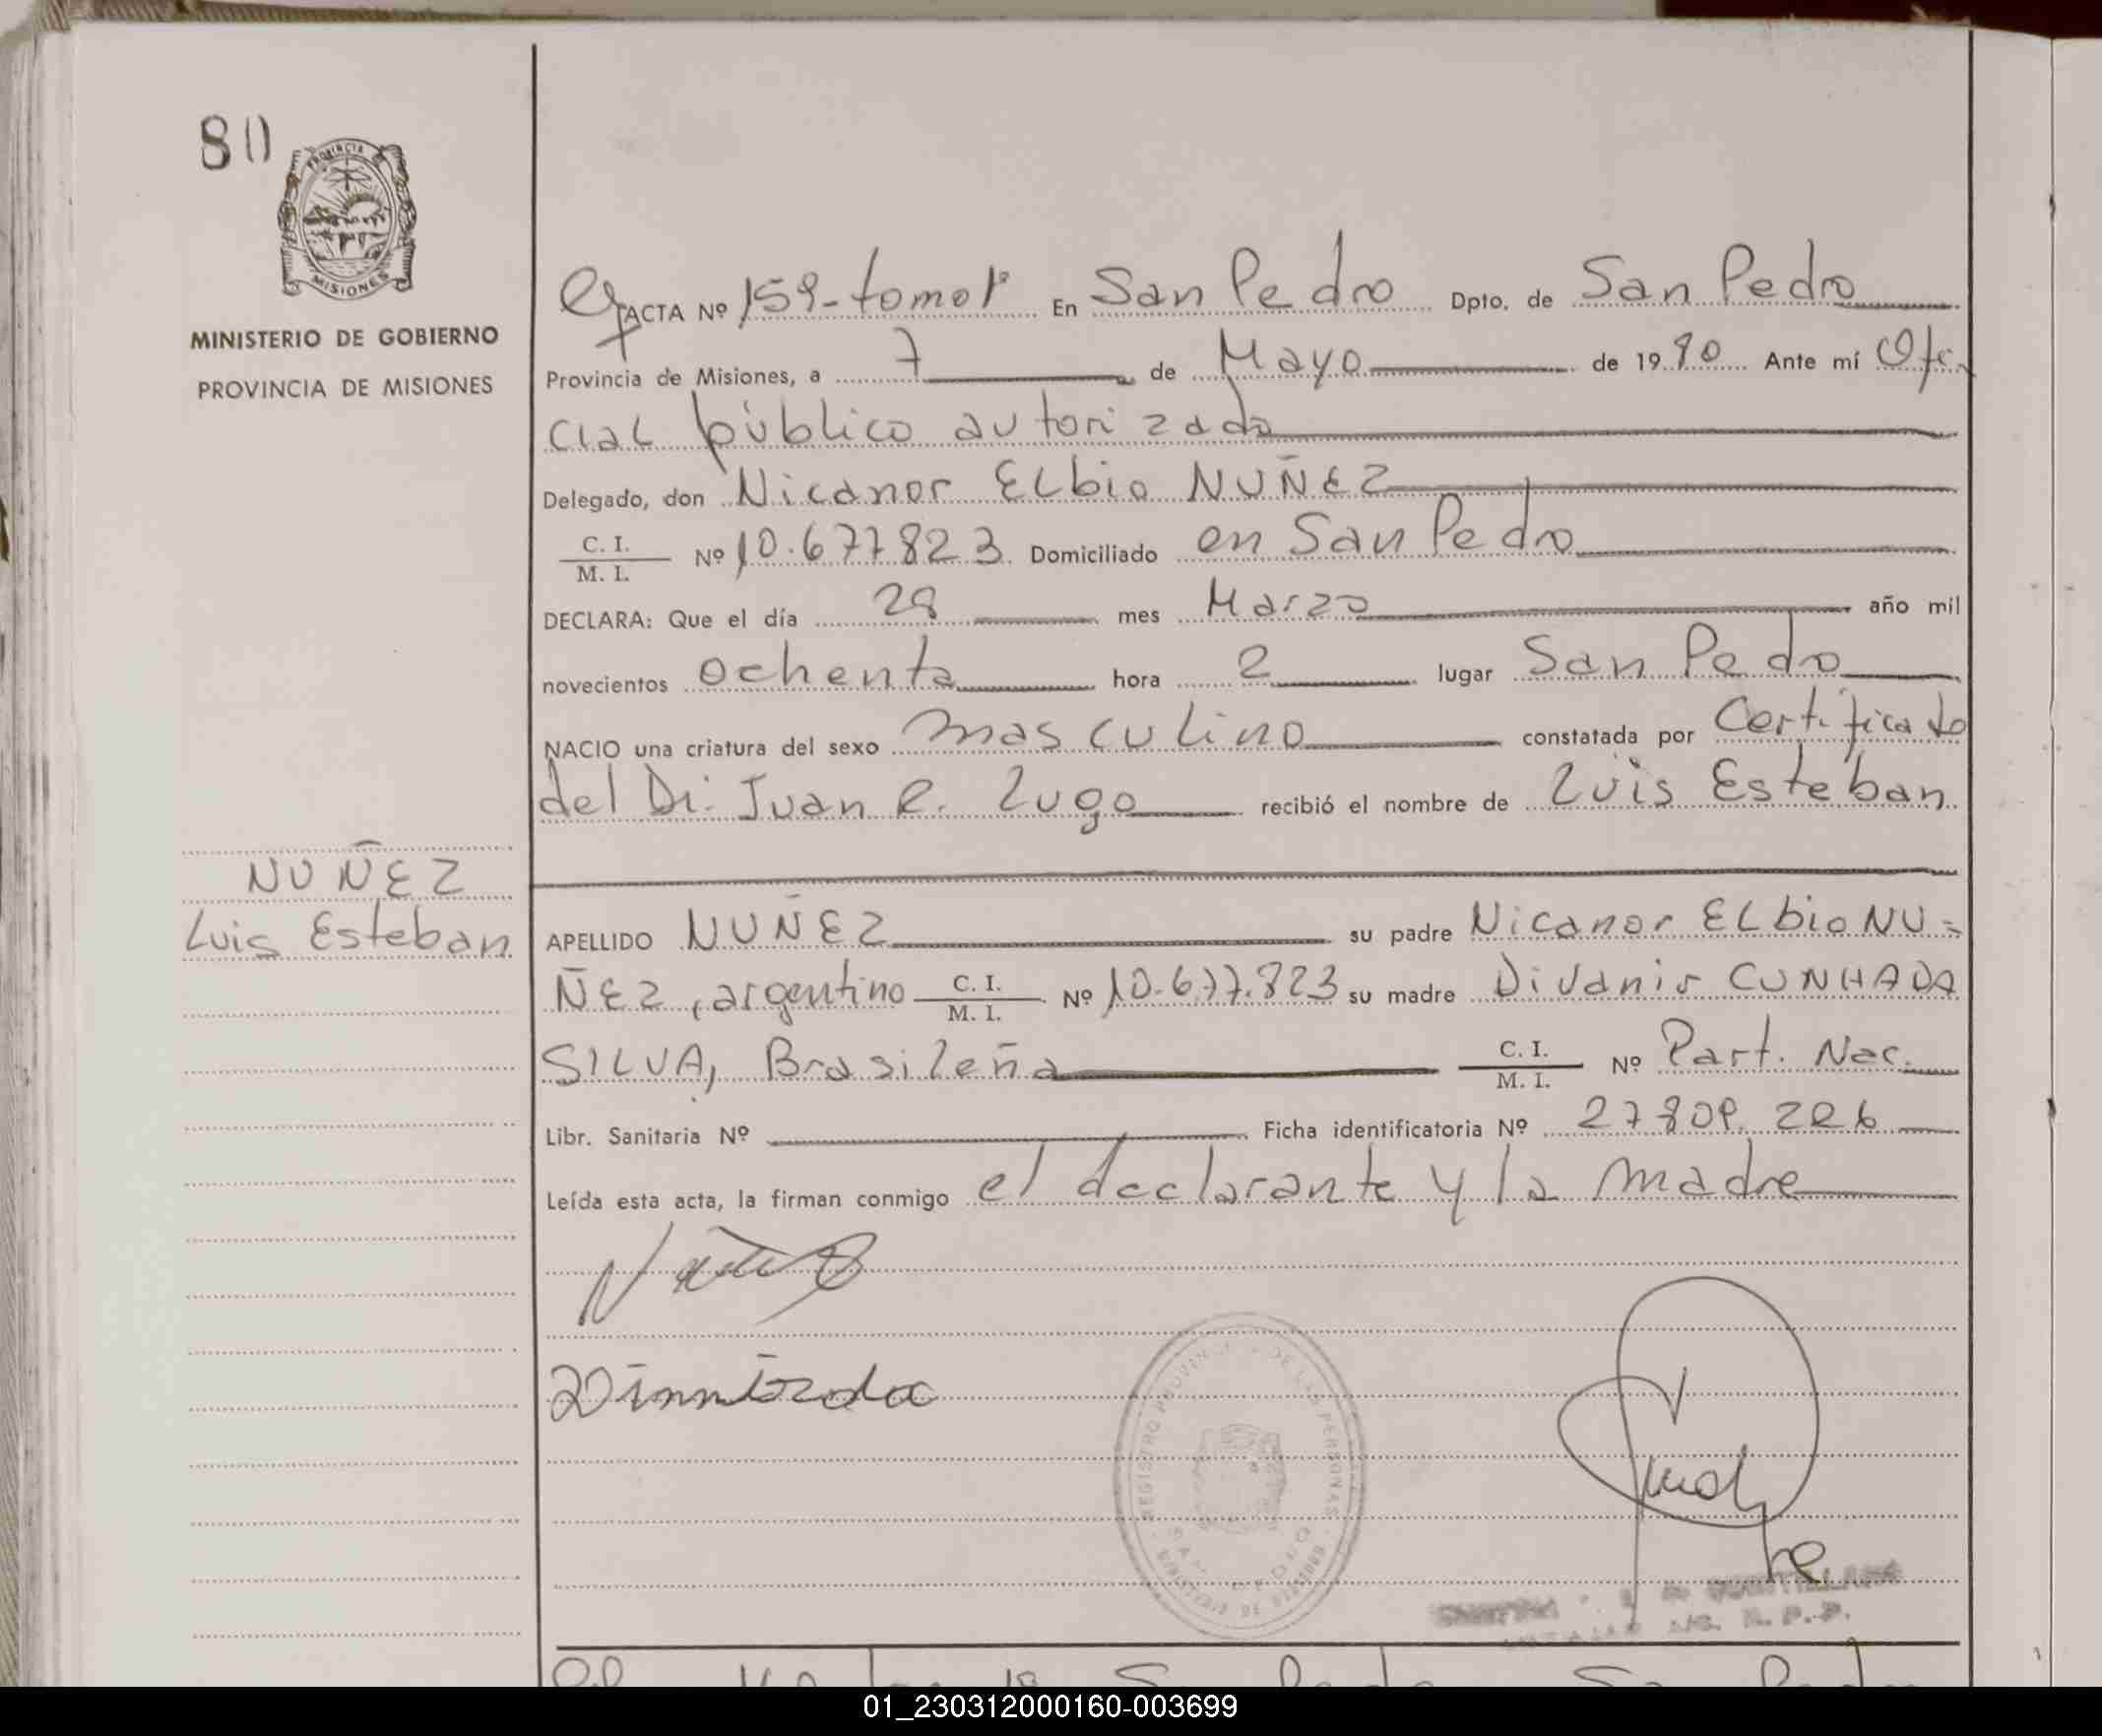 80
PROVINCIA
MISIONES
MINISTERIO DE GOBIERNO
PROVINCIA DE MISIONES
NUÑEZ
Luis Esteban
ACTA Nº 159-tomo 1º En San Pedro Dpto. de San Pedro
Provincia de Misiones, a 7 de Mayo de 1980 Ante mí Ofi-
cial público autorizado
Delegado, don Nicanor ELbio NUÑEZ
C. I. / M. I. Nº 10.677823 Domiciliado en San Pedro
DECLARA: Que el día 28 mes Marzo año mil
novecientos ochenta hora 2 lugar San Pedro
NACIO una criatura del sexo masculino constatada por Certificado
del Dr. Juan R. Lugo recibió el nombre de Luis Esteban
APELLIDO NUÑEZ su padre Nicanor ELbio NU=
ÑEZ, argentino C. I. / M. I. Nº 10.677.823 su madre Divanir CUNHA DA
SILVA, Brasileña C. I. / M. I. Nº Part. Nac.
Libr. Sanitaria Nº Ficha identificatoria Nº 27809.226
Leída esta acta, la firman conmigo el declarante y la madre
REGISTRO PROVINCIAL DE LAS PERSONAS
SAN PEDRO
01_230312000160-003699